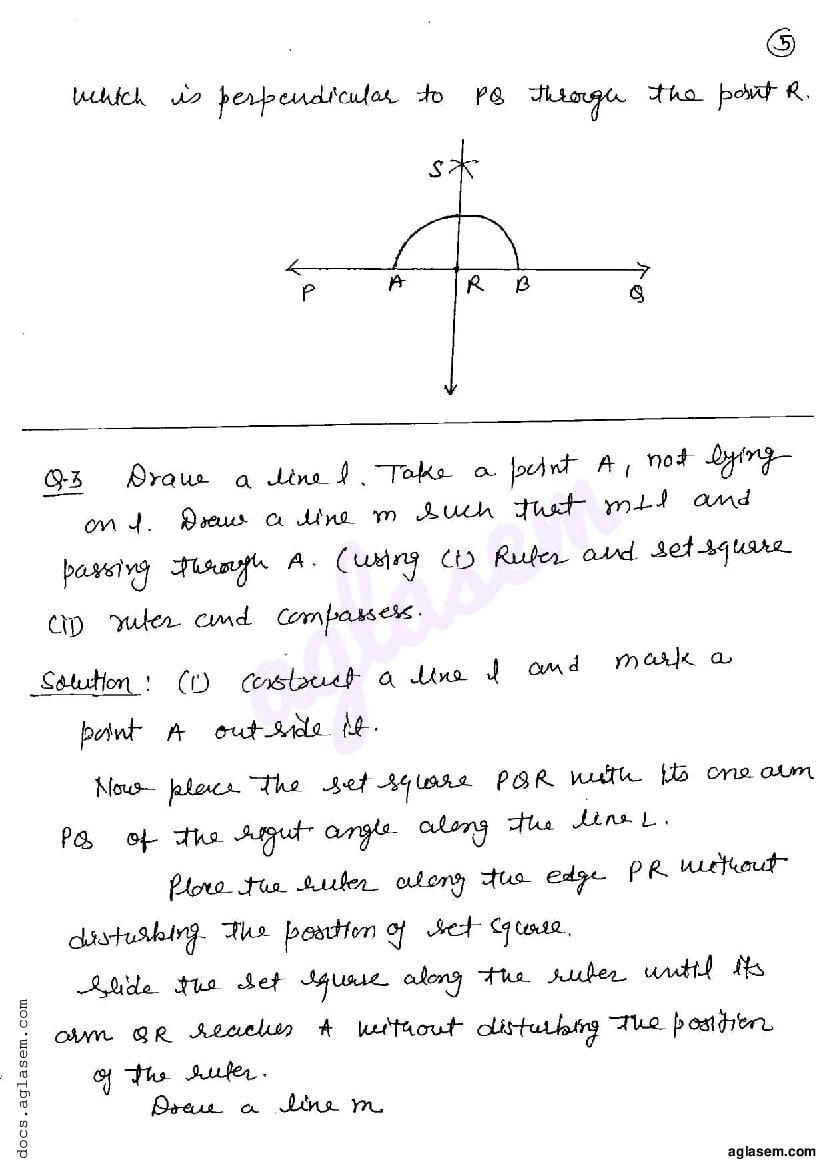 5
which is perpendicular to PQ through the point R.
S
P A R B Q
Q-3 Draw a line l. Take a point A, not lying
on l. Draw a line m such that m⊥l and
passing through A. (using (i) Ruler and set square
(ii) ruler and compassess.
Solution: (i) construct a line l and mark a
point A outside it.
Now place the set square PQR with its one arm
PQ of the right angle along the line L.
Place the ruler along the edge PR without
disturbing the position of set square.
Slide the set square along the ruler until its
arm QR reaches A without disturbing the position
of the ruler.
Draw a line m
aglasem
docs.aglasem.com
aglasem.com